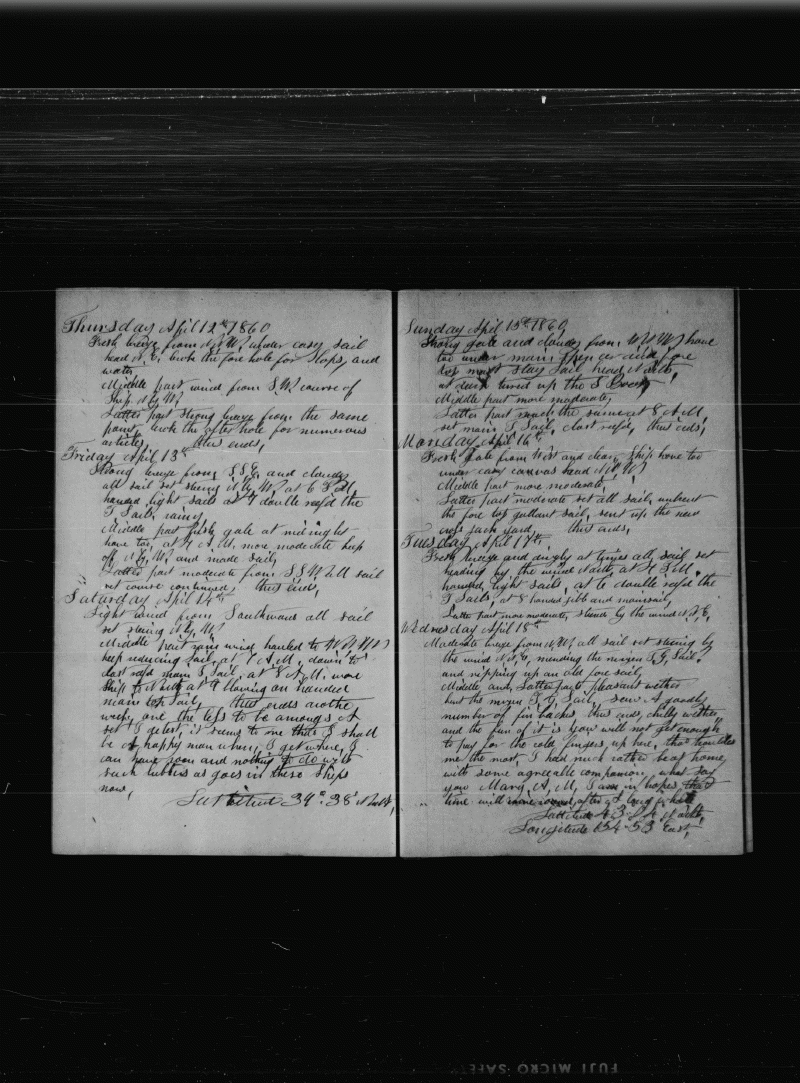 Thursday April 12th 1860
Fresh breeze from N.N.W. under easy sail
head N.E. broke the fore hole for slops, and
water
Middle part wind from S.W. course of
Ship N by W
Latter part strong breeze from the same
point, broke the after hole for numerous
articles, thus ends,
Friday April 13th
Strong breeze from S.S.E. and cloudy
all sail set steering N by W at 6 P.M.
handed light sails at 7 double reefd the
T Sails, rainy
Middle part fresh gale at midnight
hove too, at 4 A.M. more moderate keep
off N by W. and made sail,
Latter part moderate from S.S.W. all sail
set course continued, thus ends,
Saturday April 14th
Light wind from Southward all sail
set steering N by W
Middle part rainy wind hauled to W.N.W.
keep reducing sail, at 7 A.M. down to
close refd main T Sail, at 8 A.M. wore
Ship to North at 9 blowing on handed
main top sail, thus ends anothe
week, one the less to be amongs A
set I detest, it seems to me that I shall
be A happy man when, I get where, I
can have room and nothing to do with
such lubbers as goes in these Ships
now,
Lattitude 39° 38' North,
Sunday April 15th 1860,
Strong gale and cloudy from W.N.W. hove
too under main Spencer and fore
top mast Stay Sail head North,
at dark turned up the S Boat
Middle part more moderate,
Latter part much the same at 8 A.M.
set main T Sail, close refd, thus ends,
Monday April 16th
Fresh gale from West and clear, Ship hove too
under easy canvas head N.N.W
Middle part more moderate,
Latter part moderate set all sail, unbent
the fore top gallant sail, sent up the new
cross jack yard, thus ends,
Tuesday April 17th
Fresh breeze and drizly at times all sail set
heading by the wind North at 4 P.M.
handed light sails, at 6 double refd the
T Sails, at 8 handed jibb and mainsail,
Latter part more moderate, steered by the wind N.N.E,
Wednesday April 18th
Moderate breeze from N.W. all sail set steering by
the wind N.N.E, mending the mizen T.G. Sail,
and ripping up an old fore sail,
Middle and Latter parts pleasant wether
bent the mizen T.G. Sail, seen A goodly
number of fin backs thus ends, chilly wether,
and the fun of it is you will not get enough
to pay for the cold fingers up here, that troubles
me the most, I had much rather be at home,
with some agreeable companion, what say
you Mary A, M, I am in hopes that
time will come round after A long
Lattitude 43-14 North,
Longitude 154-53 East,
FUJI MICRO SAFE